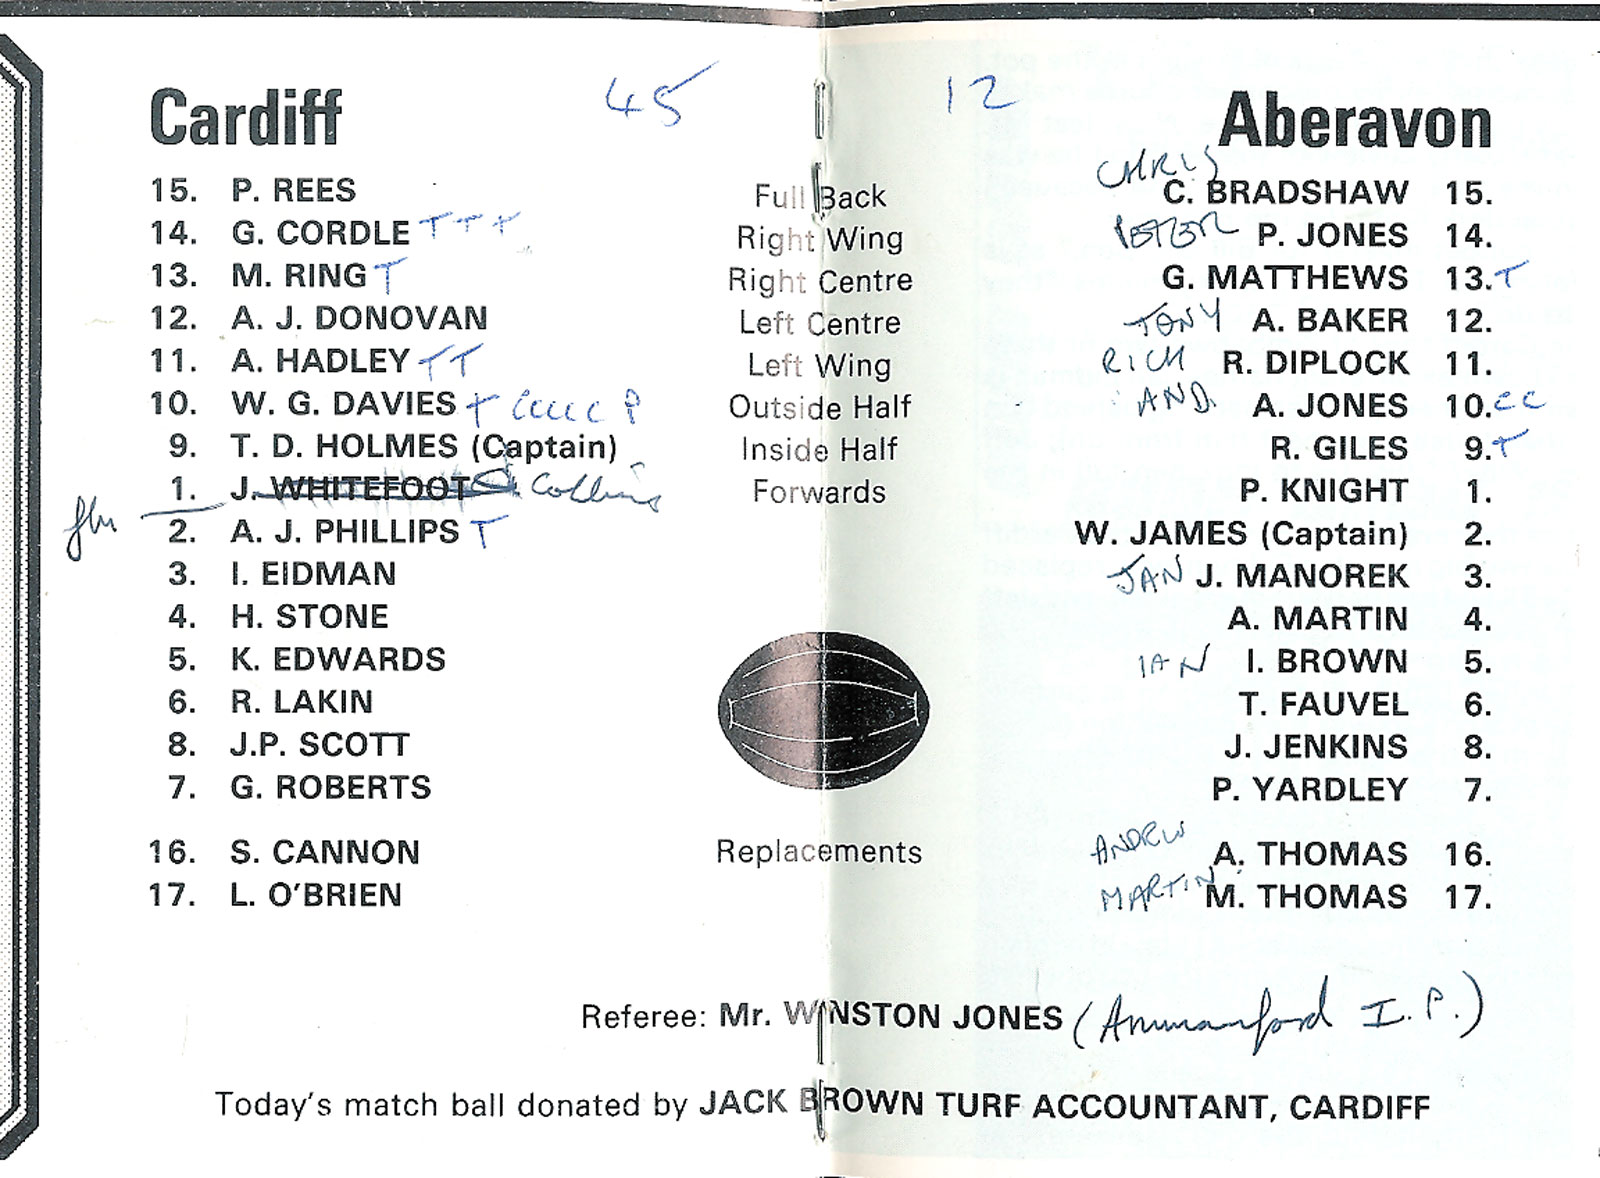 Cardiff 45 12 Aberavon
15. P. REES Full Back CHRIS C. BRADSHAW 15.
14. G. CORDLE T T T Right Wing PETER P. JONES 14.
13. M. RING T Right Centre G. MATTHEWS 13. T
12. A. J. DONOVAN Left Centre TONY A. BAKER 12.
11. A. HADLEY T T Left Wing RICH R. DIPLOCK 11.
10. W. G. DAVIES T CCCC P Outside Half AND. A. JONES 10. CC
9. T. D. HOLMES (Captain) Inside Half R. GILES 9. T
1. J. WHITEFOOT Collins Forwards P. KNIGHT 1.
2. A. J. PHILLIPS T W. JAMES (Captain) 2.
3. I. EIDMAN JAN J. MANOREK 3.
4. H. STONE A. MARTIN 4.
5. K. EDWARDS IAN I. BROWN 5.
6. R. LAKIN T. FAUVEL 6.
8. J.P. SCOTT J. JENKINS 8.
7. G. ROBERTS P. YARDLEY 7.
16. S. CANNON Replacements ANDREW A. THOMAS 16.
17. L. O'BRIEN MARTIN M. THOMAS 17.
Referee: Mr. WINSTON JONES (Ammanford I.P.)
Today's match ball donated by JACK BROWN TURF ACCOUNTANT, CARDIFF